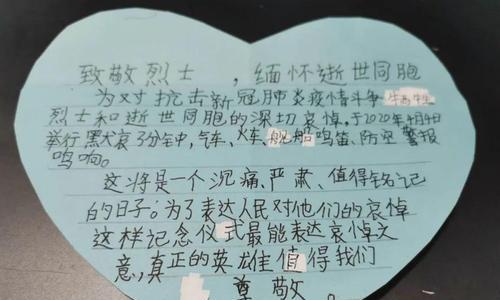 致敬烈士，缅怀逝世同胞
为对抗击新冠肺炎疫情斗争牺牲
烈士和逝世同胞的深切哀悼。于2020年4月4日
举行黑犬哀了分钟中，气车、火车、舰船鸣笛、防空警报
鸣响。
这将是一个沉痛、严肃、值得铭记
的日子。为了表达人民对他们的哀悼
这样记念仪式最能表达哀悼文
意，真正的英雄值得我们
尊敬。